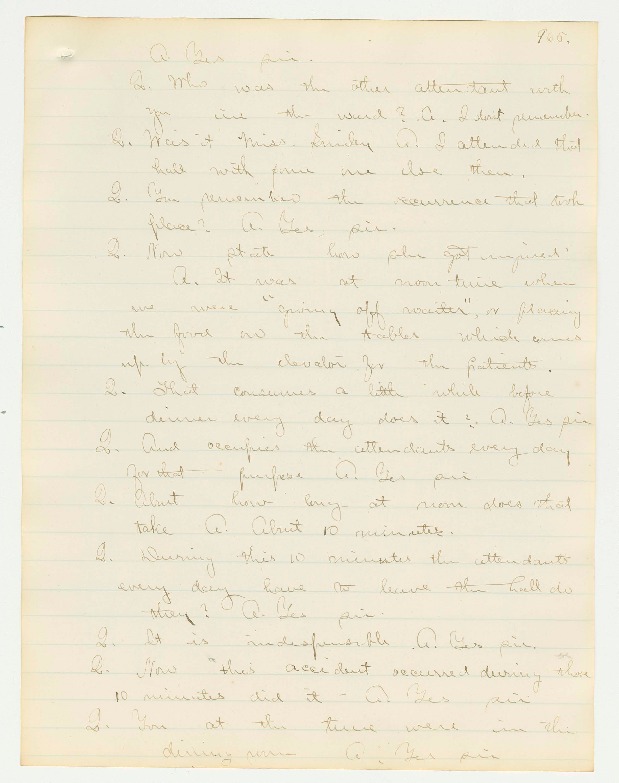 966.
A Yes sir.
Q. Who was the other attendant with
you in the ward? A. I don't remember.
Q. Was it Miss. Smiley A. I attended that
hall with some one else then.
Q. You remember the occurrence that took
place? A. Yes sir.
Q. Now state how she got injured?
A. It was at noon-time when
we were "giving off waiter", or placing
the food on the tables which comes
up by the elevator for the patients.
Q. That consumes a little while before
dinner every day does it? A. Yes sir
Q. And occupies the attendants every day
for that purpose A. Yes sir
Q. About how long at noon does that
take A. About 10 minutes.
Q. During this 10 minutes the attendants
every day have to leave the hall do
they? A. Yes sir.
Q. It is indespensible A. Yes sir.
Q. Now this accident occurred during those
10 minutes did it - A. Yes sir
Q. You at the time were in the
dining room A. Yes sir